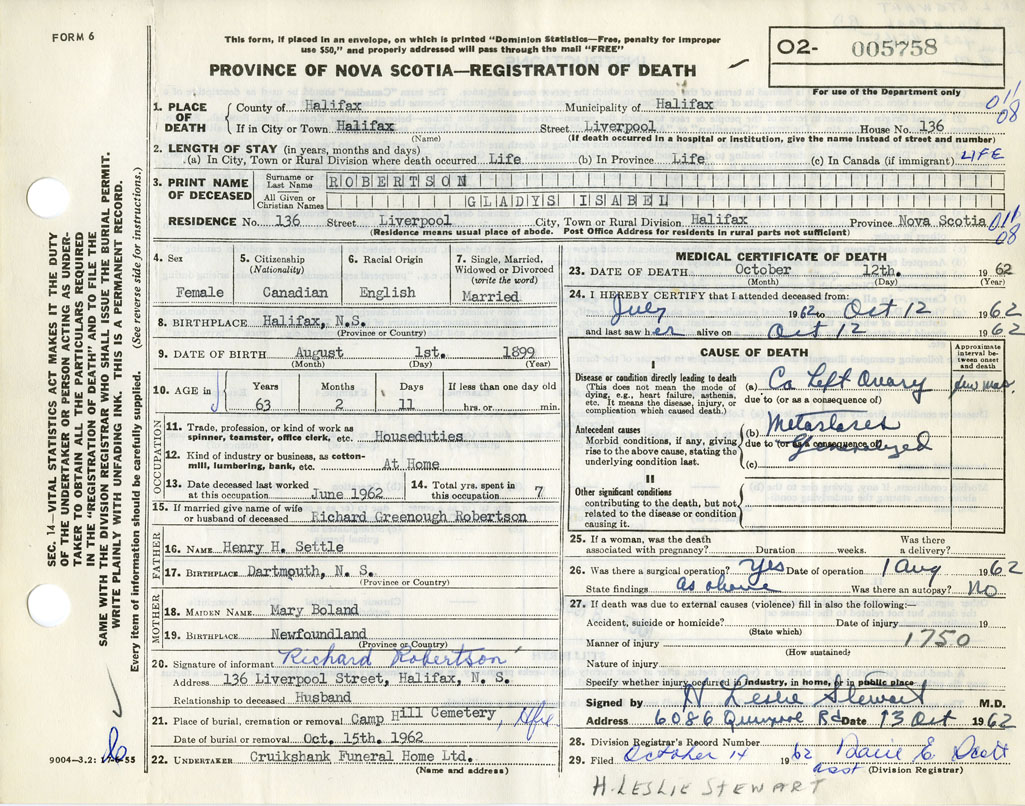 FORM 6
This form, if placed in an envelope, on which is printed "Dominion Statistics—Free, penalty for improper
use $50," and properly addressed will pass through the mail "FREE"
PROVINCE OF NOVA SCOTIA—REGISTRATION OF DEATH
O2- 005758
For use of the Department only
011
08
1. PLACE OF DEATH
County of Halifax Municipality of Halifax
If in City or Town Halifax Street Liverpool House No. 136
(Name) (If death occurred in a hospital or institution, give the name instead of street and number)
2. LENGTH OF STAY (in years, months and days)
(a) In City, Town or Rural Division where death occurred Life (b) In Province Life (c) In Canada (if immigrant) LIFE
3. PRINT NAME OF DECEASED
Surname or Last Name ROBERTSON
All Given or Christian Names GLADYS ISABEL
RESIDENCE No. 136 Street Liverpool City, Town or Rural Division Halifax Province Nova Scotia
011
08
(Residence means usual place of abode. Post Office Address for residents in rural parts not sufficient)
4. Sex
Female
5. Citizenship
(Nationality)
Canadian
6. Racial Origin
English
7. Single, Married,
Widowed or Divorced
(write the word)
Married
8. BIRTHPLACE Halifax, N.S.
(Province or Country)
9. DATE OF BIRTH August 1st. 1899
(Month) (Day) (Year)
10. AGE in Years Months Days If less than one day old
63 2 11 hrs. or min.
OCCUPATION
11. Trade, profession, or kind of work as
spinner, teamster, office clerk, etc. Houseduties
12. Kind of industry or business, as cotton-
mill, lumbering, bank, etc. At Home
13. Date deceased last worked
at this occupation June 1962
14. Total yrs. spent in
this occupation 7
15. If married give name of wife
or husband of deceased Richard Greenough Robertson
FATHER
16. NAME Henry H. Settle
17. BIRTHPLACE Dartmouth, N. S.
(Province or Country)
MOTHER
18. MAIDEN NAME Mary Boland
19. BIRTHPLACE Newfoundland
(Province or Country)
20. Signature of informant Richard Robertson
Address 136 Liverpool Street, Halifax, N. S.
Relationship to deceased Husband
21. Place of burial, cremation or removal Camp Hill Cemetery, Hfx
Date of burial or removal Oct. 15th. 1962
22. UNDERTAKER Cruikshank Funeral Home Ltd.
(Name and address)
MEDICAL CERTIFICATE OF DEATH
23. DATE OF DEATH October 12th. 1962
(Month) (Day) (Year)
24. I HEREBY CERTIFY that I attended deceased from:
July 1962 to Oct 12 1962
and last saw her alive on Oct 12 1962
CAUSE OF DEATH
Approximate
interval be-
tween onset
and death
I
Disease or condition directly leading to death
(This does not mean the mode of
dying, e.g., heart failure, asthenia,
etc. It means the disease, injury, or
complication which caused death.)
(a) Ca Left Ovary few mos.
due to (or as a consequence of)
Antecedent causes
Morbid conditions, if any, giving
rise to the above cause, stating the
underlying condition last.
(b) Metastases
due to (or as a consequence of)
Generalized
(c)
II
Other significant conditions
contributing to the death, but not
related to the disease or condition
causing it.
25. If a woman, was the death
associated with pregnancy? Duration weeks. Was there
a delivery?
26. Was there a surgical operation? Yes Date of operation 1 Aug 1962
State findings as above Was there an autopsy? No
27. If death was due to external causes (violence) fill in also the following:—
Accident, suicide or homicide? Date of injury 19
(State which)
Manner of injury 1750
(How sustained)
Nature of injury
Specify whether injury occurred in industry, in home, or in public place
Signed by H Leslie Stewart M.D.
Address 6086 Quinpool Rd Date 13 Oct 1962
28. Division Registrar's Record Number
29. Filed October 14 1962
asst (Division Registrar)
H. LESLIE STEWART
SEC. 14—VITAL STATISTICS ACT MAKES IT THE DUTY
OF THE UNDERTAKER OR PERSON ACTING AS UNDER-
TAKER TO OBTAIN ALL THE PARTICULARS REQUIRED
IN THE "REGISTRATION OF DEATH" AND TO FILE THE
SAME WITH THE DIVISION REGISTRAR WHO SHALL ISSUE THE BURIAL PERMIT.
WRITE PLAINLY WITH UNFADING INK. THIS IS A PERMANENT RECORD.
Every item of information should be carefully supplied. (See reverse side for instructions.)
9004—3.2: